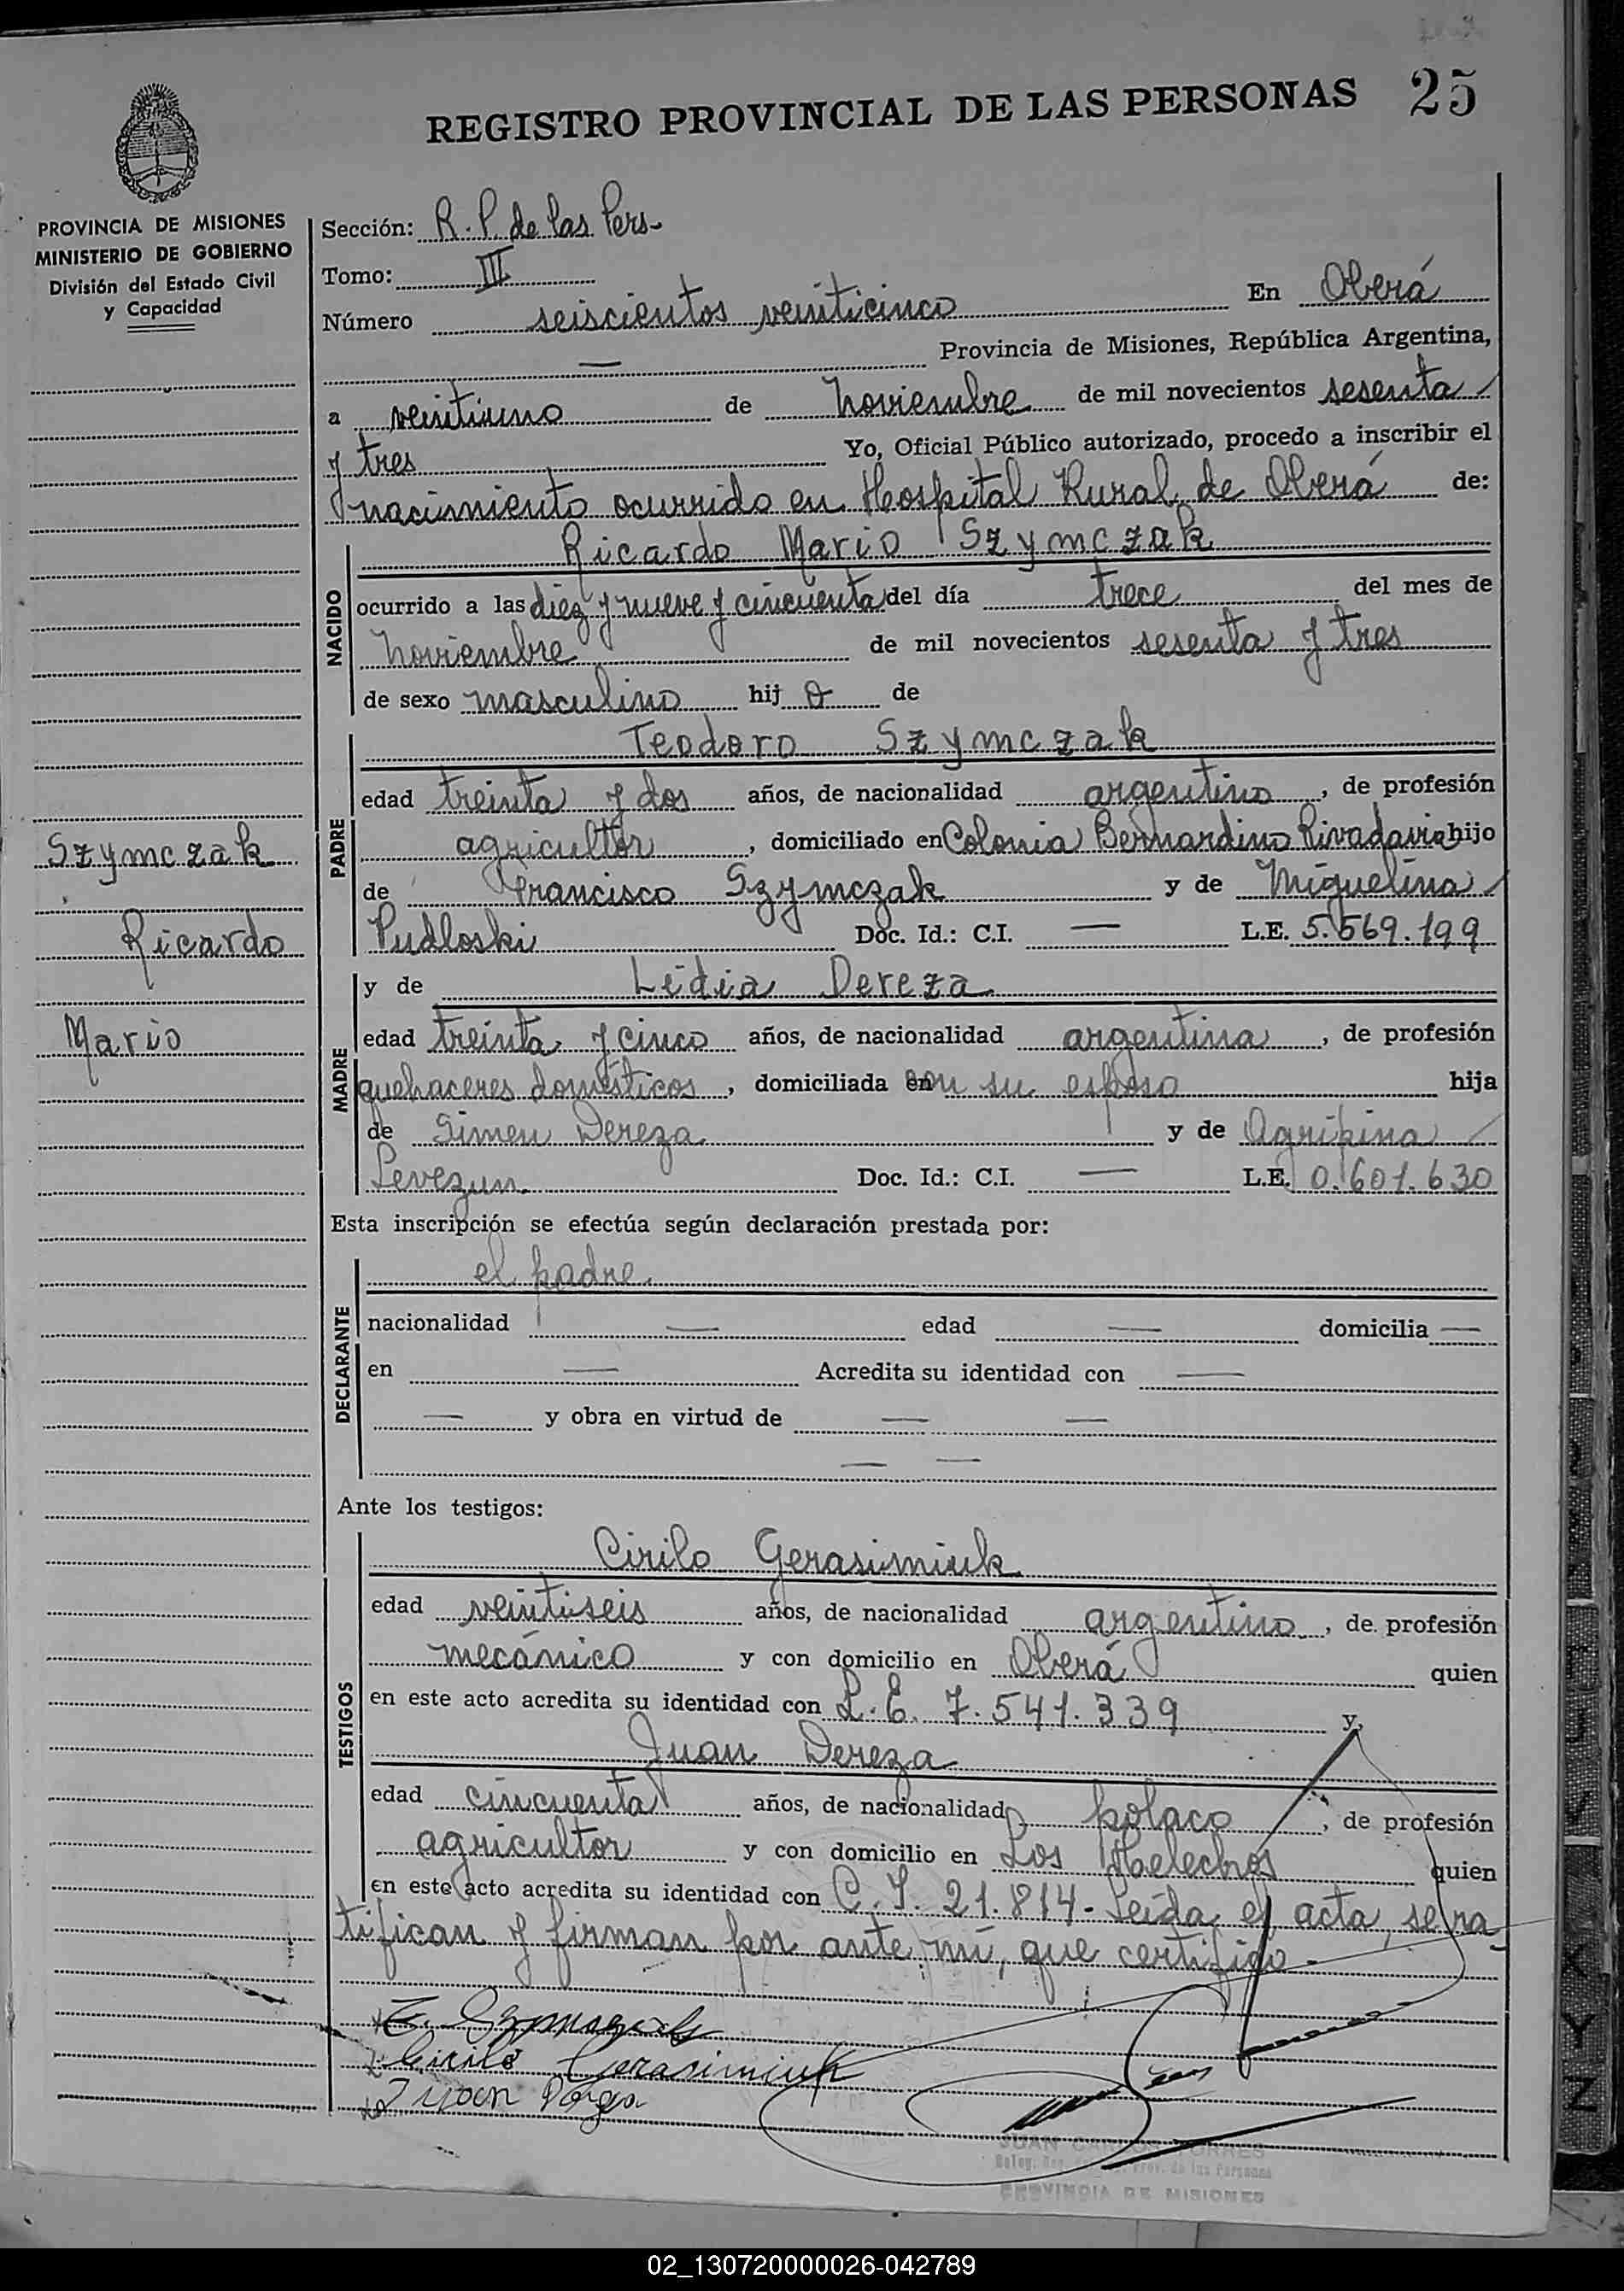 REGISTRO PROVINCIAL DE LAS PERSONAS 25
PROVINCIA DE MISIONES
MINISTERIO DE GOBIERNO
División del Estado Civil
y Capacidad
Sección: R. P. de las Pers-
Tomo: III
Número seiscientos veinticinco En Oberá
— Provincia de Misiones, República Argentina,
a veintiuno de noviembre de mil novecientos sesenta
y tres Yo, Oficial Público autorizado, procedo a inscribir el
nacimiento ocurrido en Hospital Rural de Oberá de:
NACIDO
Ricardo Mario Szymczak
ocurrido a las diez y nueve y cincuenta del día trece del mes de
noviembre de mil novecientos sesenta y tres
de sexo masculino hij o de
PADRE
Teodoro Szymczak
edad treinta y dos años, de nacionalidad argentino, de profesión
agricultor, domiciliado en Colonia Bernardino Rivadavia hijo
de Francisco Szymczak y de Miguelina
Pudloski Doc. Id.: C.I. — L.E. 5.569.199
Szymczak
Ricardo
Mario
MADRE
y de Lidia Dereza
edad treinta y cinco años, de nacionalidad argentina, de profesión
quehaceres domésticos, domiciliada con su esposo hija
de Simen Dereza y de Agripina
Levezun Doc. Id.: C.I. — L.E. 0.601.630
Esta inscripción se efectúa según declaración prestada por:
DECLARANTE
el padre
nacionalidad — edad — domicilia —
en — Acredita su identidad con —
— y obra en virtud de — —
— —
Ante los testigos:
TESTIGOS
Cirilo Gerasimiuk
edad veintiseis años, de nacionalidad argentino, de profesión
mecánico y con domicilio en Oberá quien
en este acto acredita su identidad con L. E. 7.541.339 y,
Juan Dereza
edad cincuenta años, de nacionalidad polaco, de profesión
agricultor y con domicilio en Los Helechos quien
en este acto acredita su identidad con C. I. 21.814- Leída el acta, se ra-
tifican y firman por ante mí, que certifico-
Cirilo Gerasimiuk
JUAN CARLOS TORRES
PROVINCIA DE MISIONES
02_130720000026-042789